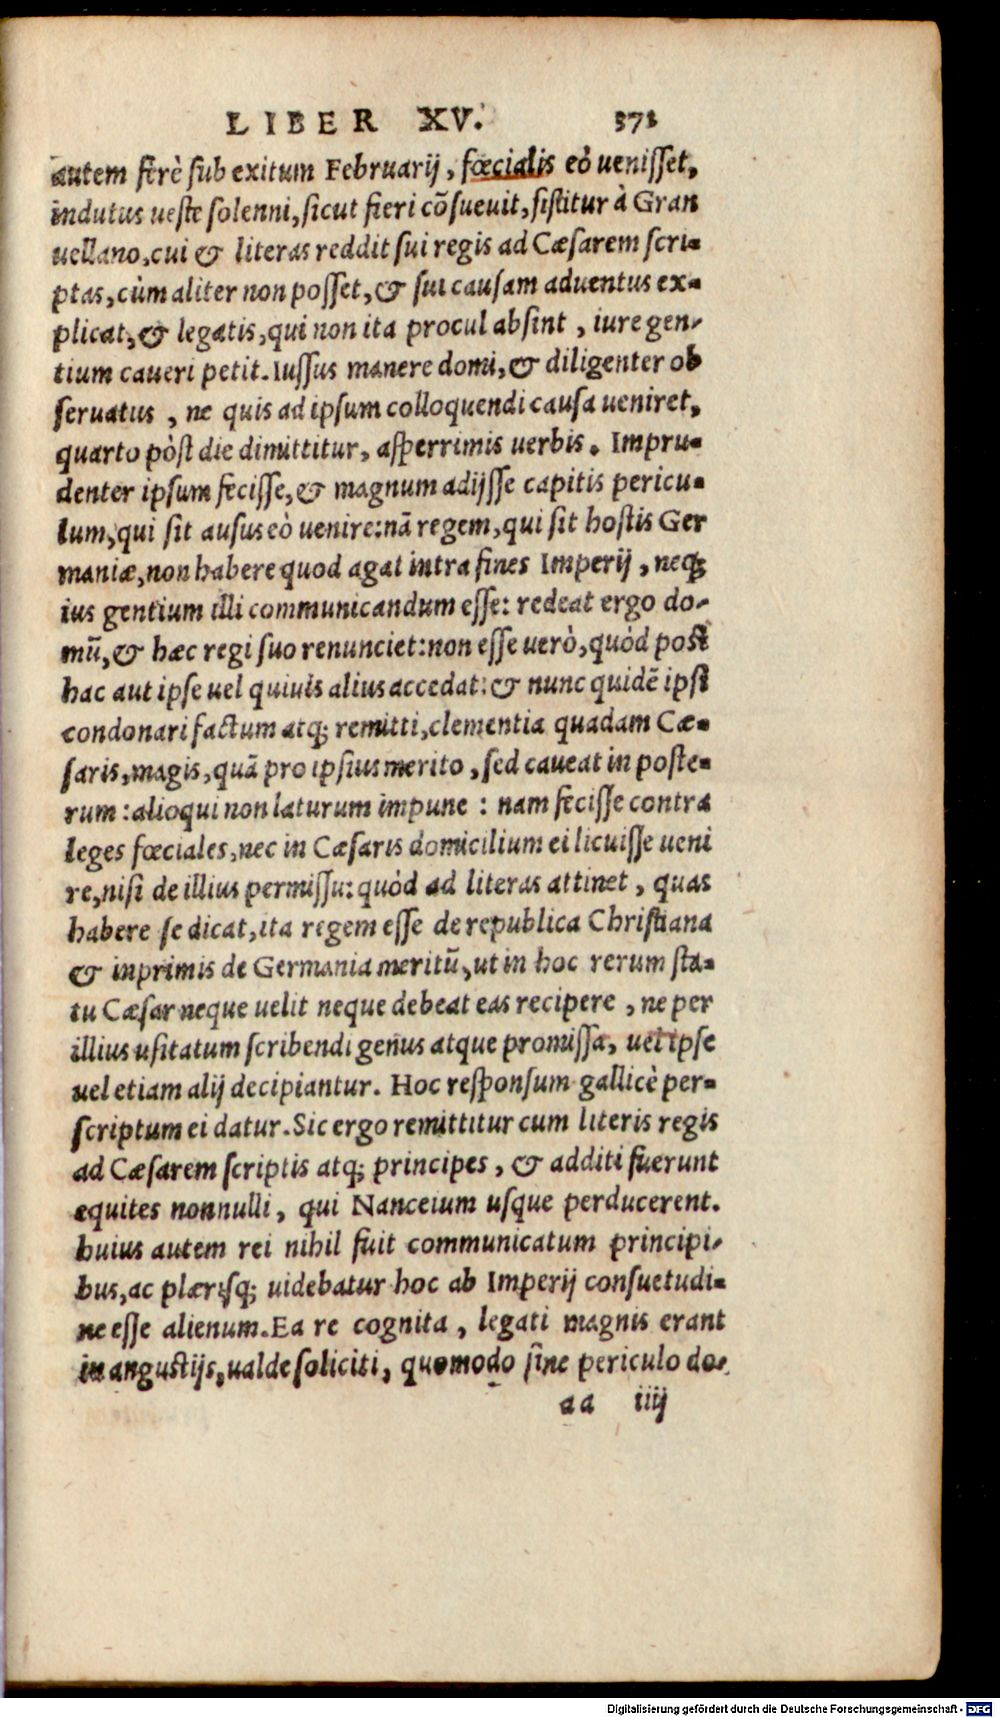 LIBER XV. 371
autem ferè sub exitum Februarij, fœcialis eò uenisset,
indutus ueste solenni, sicut fieri cõsueuit, sistitur à Gran
uellano, cui & literas reddit sui regis ad Cæsarem scri-
ptas, cùm aliter non posset, & sui causam aduentus ex-
plicat, & legatis, qui non ita procul absint, iure gen-
tium caueri petit. Iussus manere domi, & diligenter ob
seruatus, ne quis ad ipsum colloquendi causa ueniret,
quarto pòst die dimittitur, asperrimis uerbis. Impru-
denter ipsum fecisse, & magnum adijsse capitis pericu-
lum, qui sit ausus eò uenire: nã regem, qui sit hostis Ger
maniæ, non habere quod agat intra fines Imperij, neq;
ius gentium illi communicandum esse: redeat ergo do-
mũ, & hæc regi suo renunciet: non esse uerò, quòd post
hac aut ipse uel quiuis alius accedat: & nunc quidẽ ipsi
condonari factum atq; remitti, clementia quadam Cæ-
saris, magis, quã pro ipsius merito, sed caueat in poste-
rum: alioqui non laturum impune: nam fecisse contra
leges fœciales, nec in Cæsaris domicilium ei licuisse ueni
re, nisi de illius permissu: quòd ad literas attinet, quas
habere se dicat, ita regem esse de republica Christiana
& inprimis de Germania meritũ, ut in hoc rerum sta-
tu Cæsar neque uelit neque debeat eas recipere, ne per
illius usitatum scribendi genus atque promissa, uel ipse
uel etiam alij decipiantur. Hoc responsum gallicè per-
scriptum ei datur. Sic ergo remittitur cum literis regis
ad Cæsarem scriptis atq; principes, & additi fuerunt
equites nonnulli, qui Nanceium usque perducerent.
huius autem rei nihil fuit communicatum principi-
bus, ac plærisq; uidebatur hoc ab Imperij consuetudi-
ne esse alienum. Ea re cognita, legati magnis erant
in angustijs, ualde soliciti, quomodo sine periculo do-
aa iiij
Digitalisierung gefördert durch die Deutsche Forschungsgemeinschaft - DFG